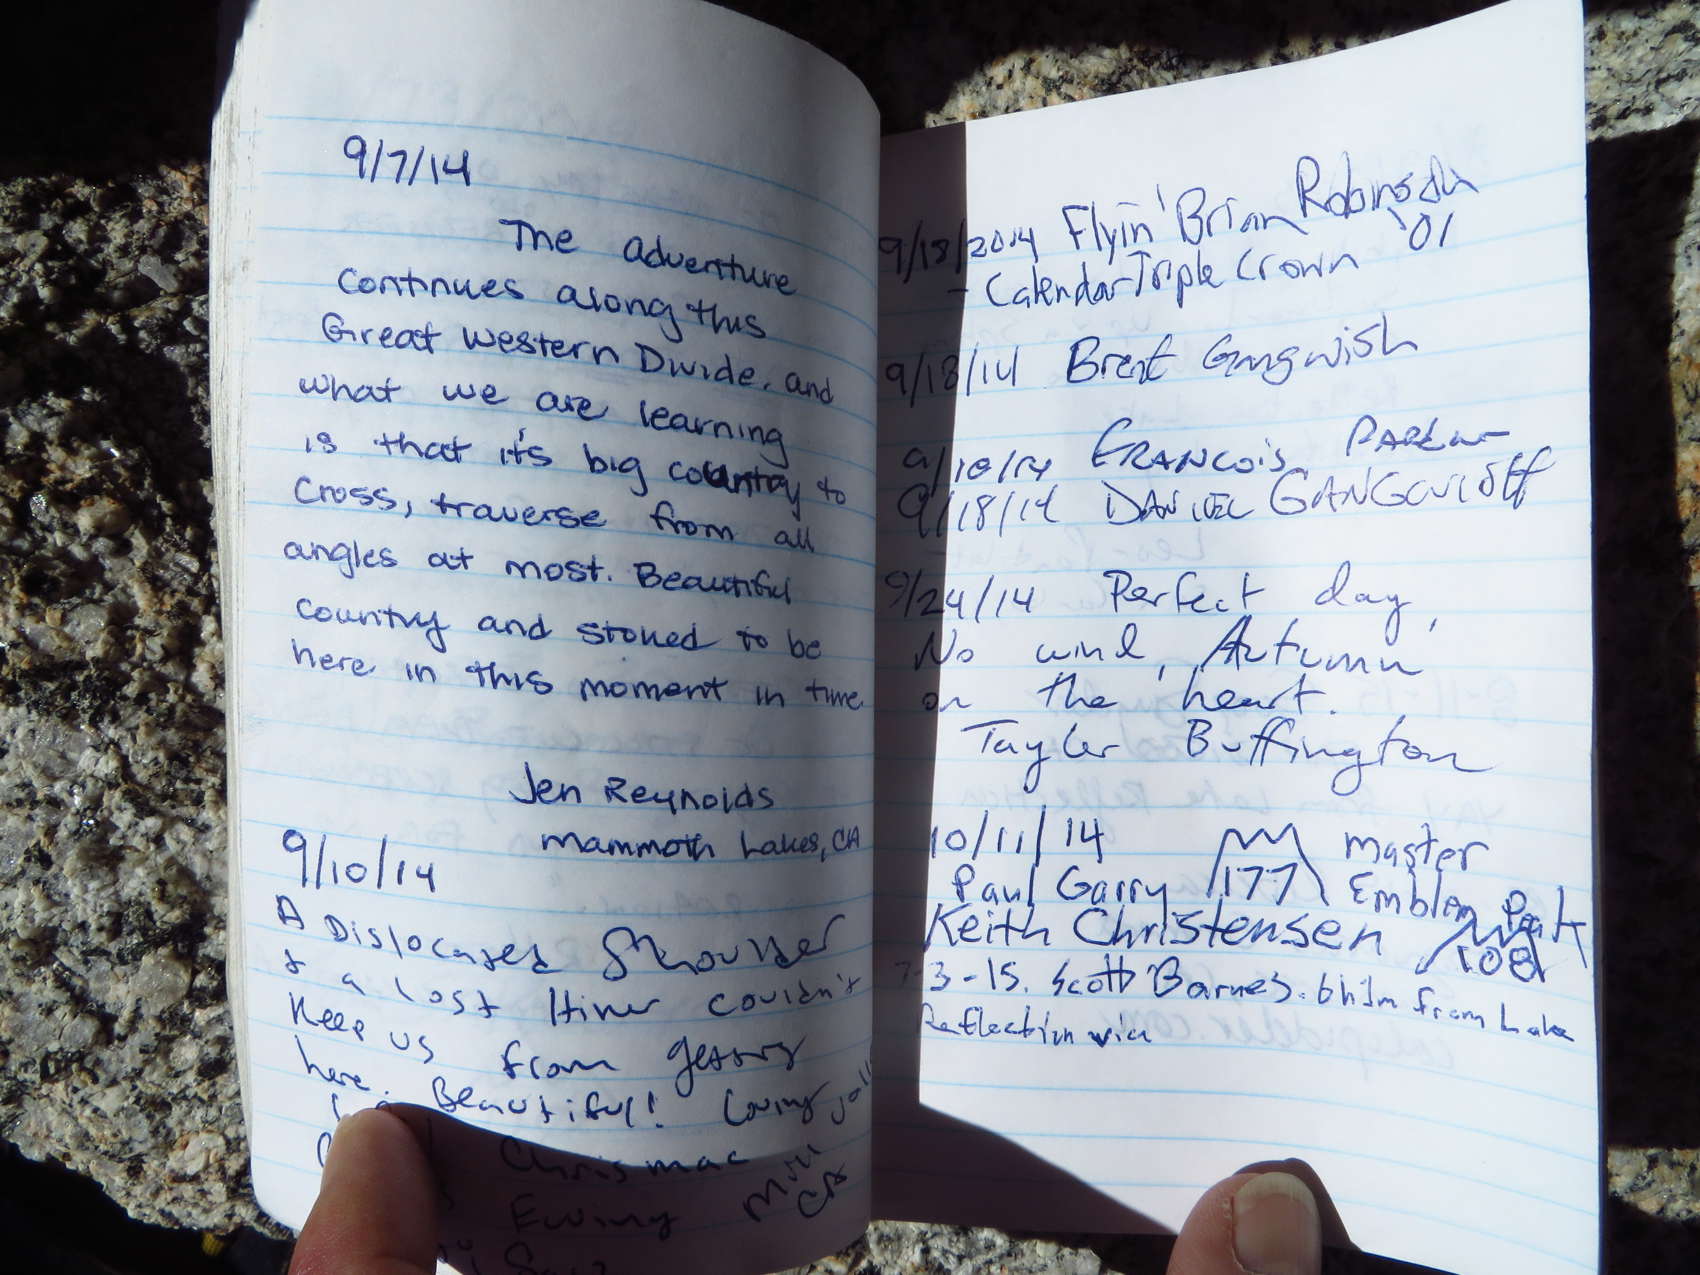 9/7/14
The adventure
continues along this
Great Western Divide. and
what we are learning
is that it's big country to
cross, traverse from all
angles at most. Beautiful
country and stoked to be
here in this moment in time
Jen Reynolds
Mammoth Lakes, CA
9/10/14
A Dislocated Shoulder
& a lost
couldn't
Keep us from getting
here. Beautiful!
Chrismac
Ewing
9/18/2014 Flyin' Brian Robinson
- Calendar Triple Crown '01
9/18/14 Brent Gangwish
9/18/14 FRANCOIS
9/18/14 DANIEL
9/24/14 Perfect day,
No wind, Autumn
on the heart.
Tayler Buffington
10/11/14
Paul Garry 177 Master Emblem Peak
Keith Christensen 108
7-3-15. Scott Barnes. 6h1m from Lake
Reflection via